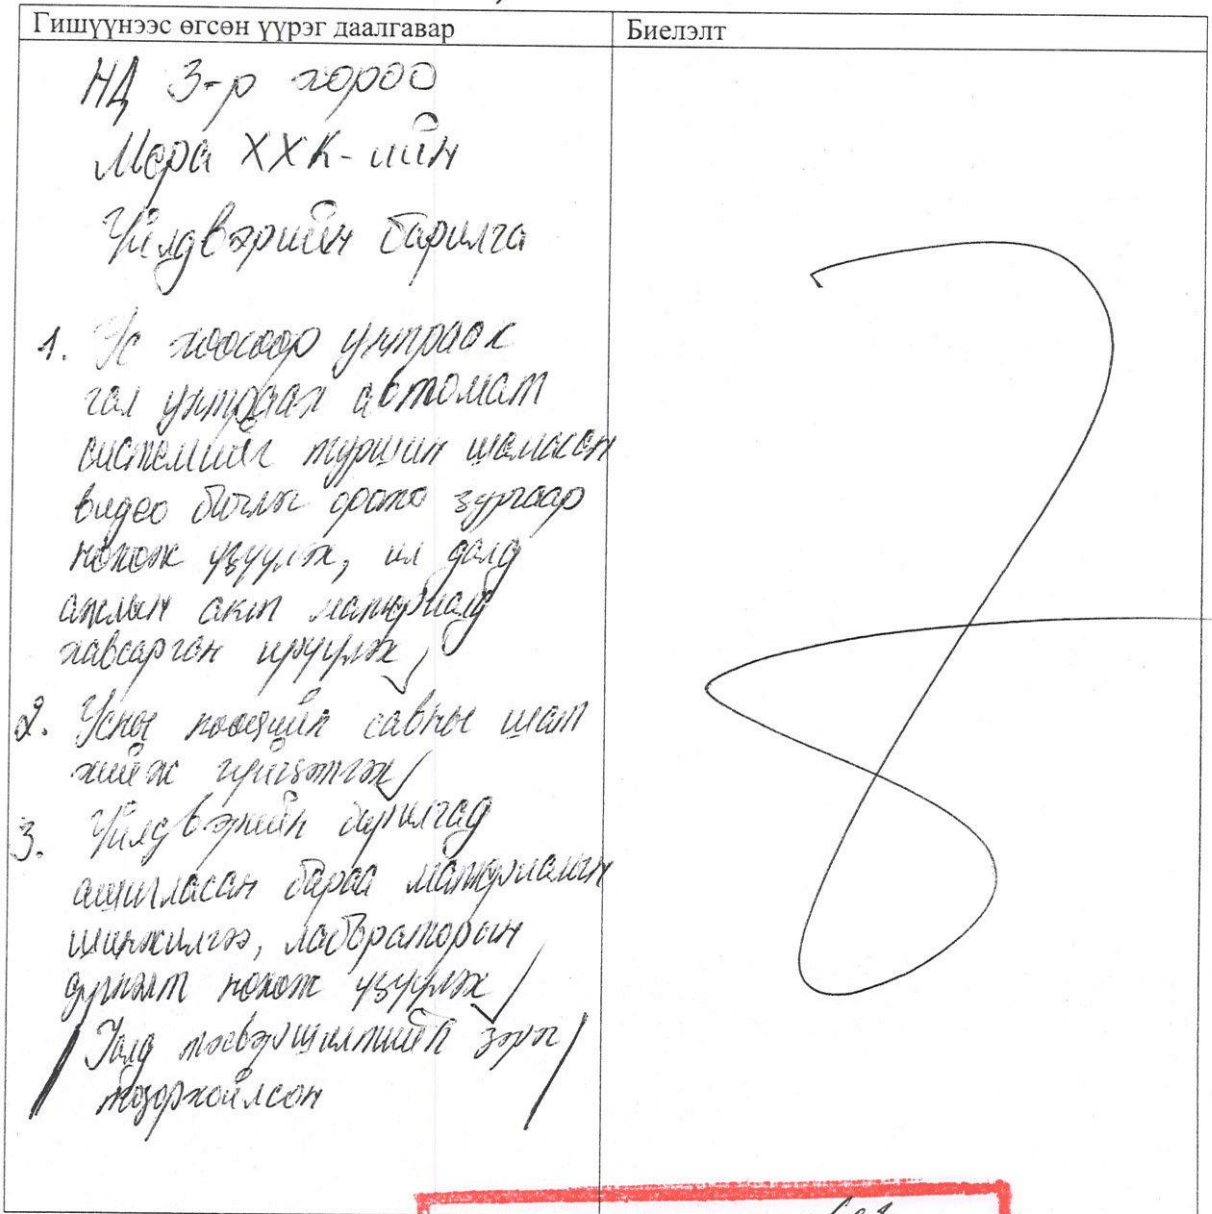 Гишүүнээс өгсөн үүрэг даалгавар
Биелэлт
НД 3-р хороо
Мера ХХК-ийн
Үйлдвэрийн барилга
1. Ус хөөсөөр унтраах
гал унтраах автомат
системийг туршин шалгасан
видео бичлэг фото зургаар
нөхөж үзүүлэх, ил далд
ажлын акт материалд
хавсарган ирүүлэх
2. Усны нөөцийн савны шат
хийж гүйцэтгэх
3. Үйлдвэрийн барилгад
ашигласан бараа материалын
шинжилгээ, лабораторын
дүгнэлт нөхөж үзүүлэх
/ Галд тэсвэршилтийн зэрэг /
тодорхойлсон